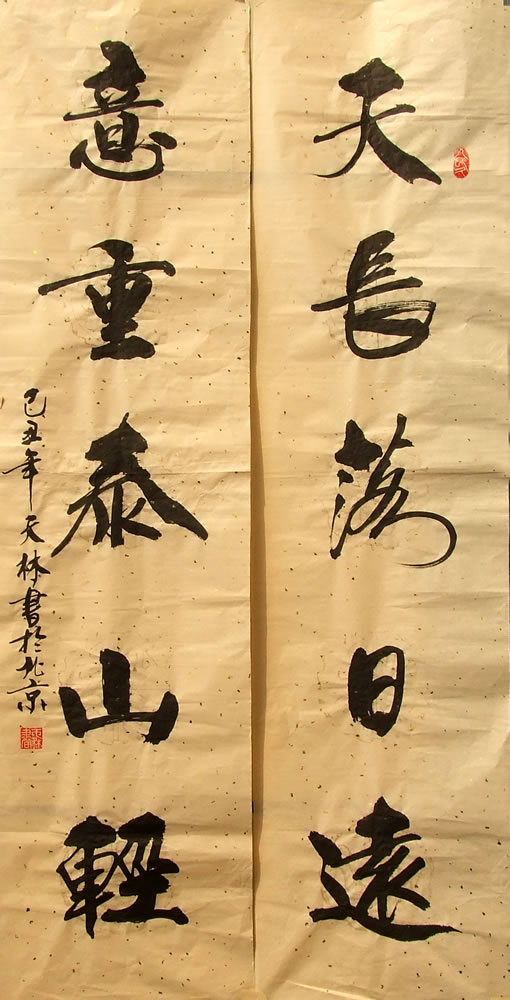 天長落日遠
意重泰山輕
己丑年天林書於北京